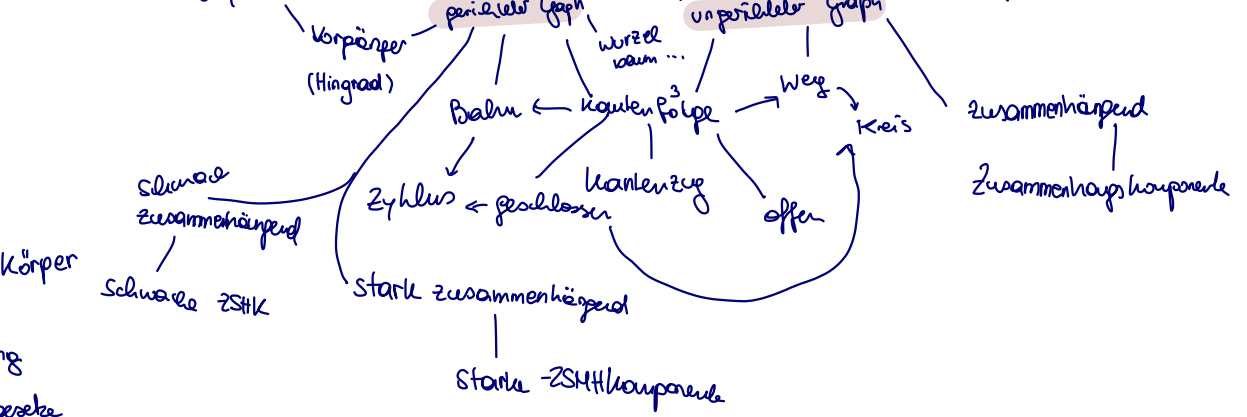 gerichteter Graph
ungerichteter Graph
Vorgänger
(Hingrad)
Wurzel
baum ...
Bahn
Kantenfolge
3
Weg
Kreis
zusammenhängend
Zusammenhangskomponente
schwach
zusammenhängend
Zyklus
geschlossen
Kantenzug
offen
Körper
Schwache ZSHK
stark zusammenhängend
ng
Starke -ZSMHkomponente
gesetze